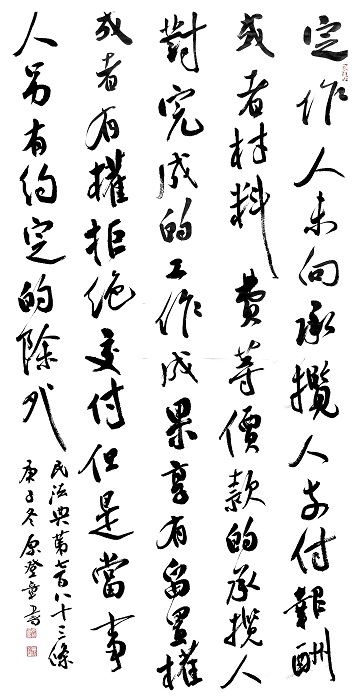 定作人未向承攬人支付報酬
或者材料費等價款的承攬人
對完成的工作成果享有留置權
或者有權拒絕交付但是當事
人另有約定的除外
民法典第七百八十三條
庚子冬原登書